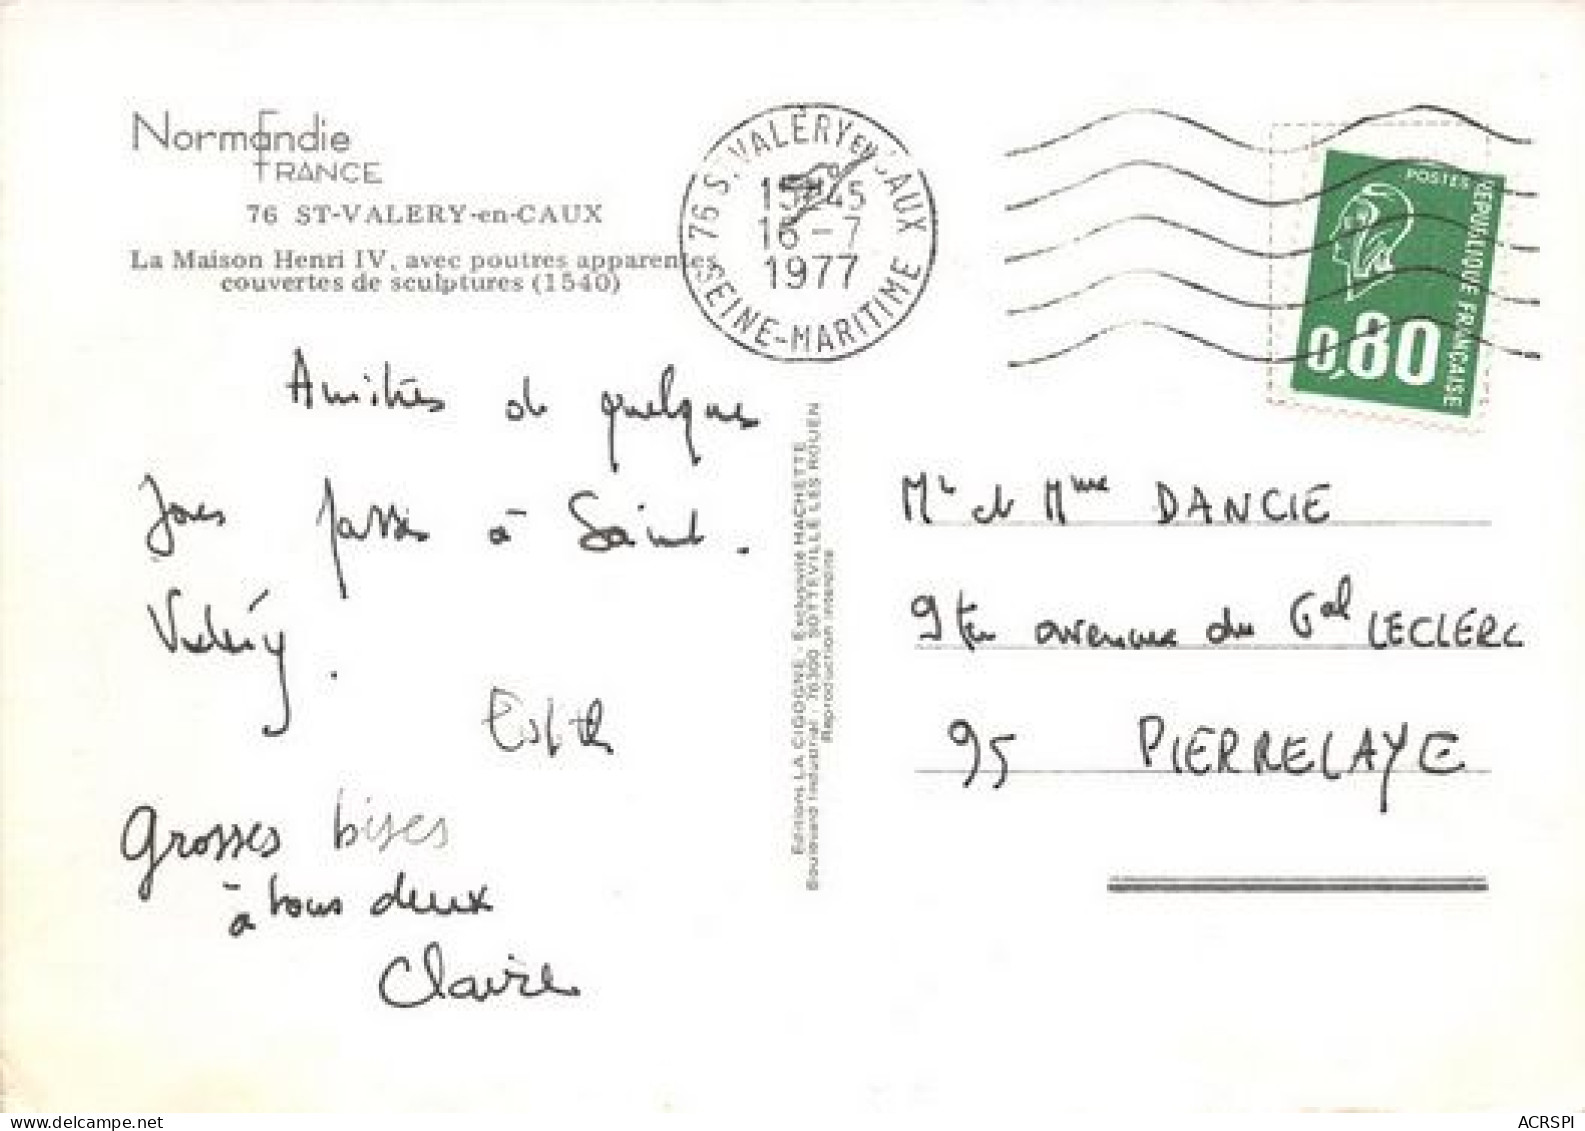 Normandie
FRANCE
76 ST-VALERY-en-CAUX
La Maison Henri IV, avec poutres apparentes
couvertes de sculptures (1540)
76 ST VALÉRY EN CAUX
15 H 45
16 - 7
1977
SEINE-MARITIME
POSTES
REPUBLIQUE FRANÇAISE
0,80
Amitiés de quelques
jours passés à Saint-
Valéry.
Edith
Grosses bises
à tous deux
Claire
Edition LA CIGOGNE - Exclusivité HACHETTE
Boulevard Industriel - 76300 SOTTEVILLE LES ROUEN
Reproduction interdite
Mr et Mme DANCIE
9ter avenue du Gal LECLERC
95 PIERRELAYE
delcampe.net
ACRSPI